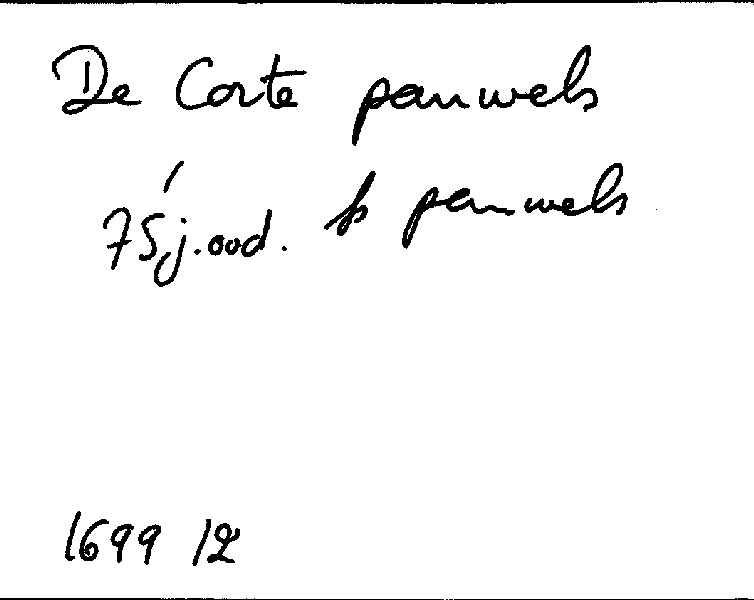 De Corte pauwels
75j.oud. fs pauwels
1699 12